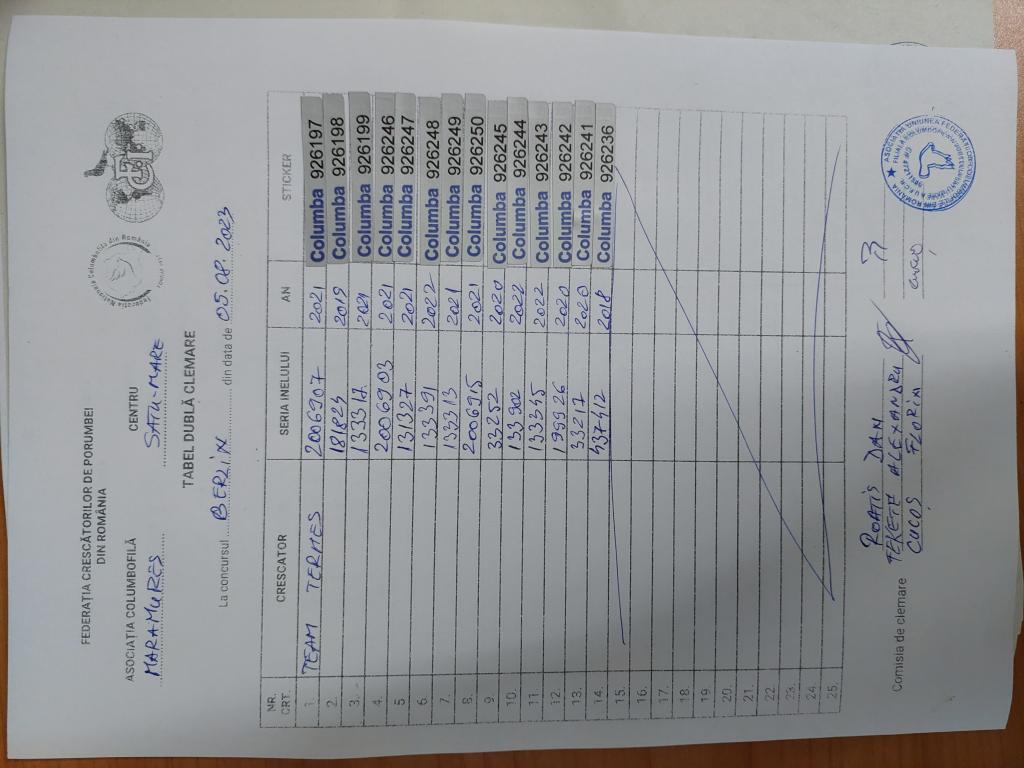 FEDERAȚIA CRESCĂTORILOR DE PORUMBEI
DIN ROMÂNIA
ASOCIAȚIA COLUMBOFILĂ CENTRU
MARAMUREȘ SATU-MARE
TABEL DUBLĂ CLEMARE
La concursul BERLIN din data de 05.08.2023
NR. CRT. CRESCATOR SERIA INELULUI AN STICKER
1. TEAM TERMES 2006907 2021 Columba 926197
2. 181824 2019 Columba 926198
3. 133317 2021 Columba 926199
4. 2006903 2021 Columba 926246
5 131327 2021 Columba 926247
6. 133391 2022 Columba 926248
7. 133313 2021 Columba 926249
8. 2006915 2021 Columba 926250
9. 33252 2020 Columba 926245
10. 133902 2022 Columba 926244
11 133345 2022 Columba 926243
12. 199926 2020 Columba 926242
13. 33217 2020 Columba 926241
14. 437412 2018 Columba 926236
15.
16.
17.
18.
19
20.
21.
22
23.
24.
25.
Comisia de clemare ROATIȘ DAN
TEKETE ALEXANDRU
CUCOȘ FLORIN